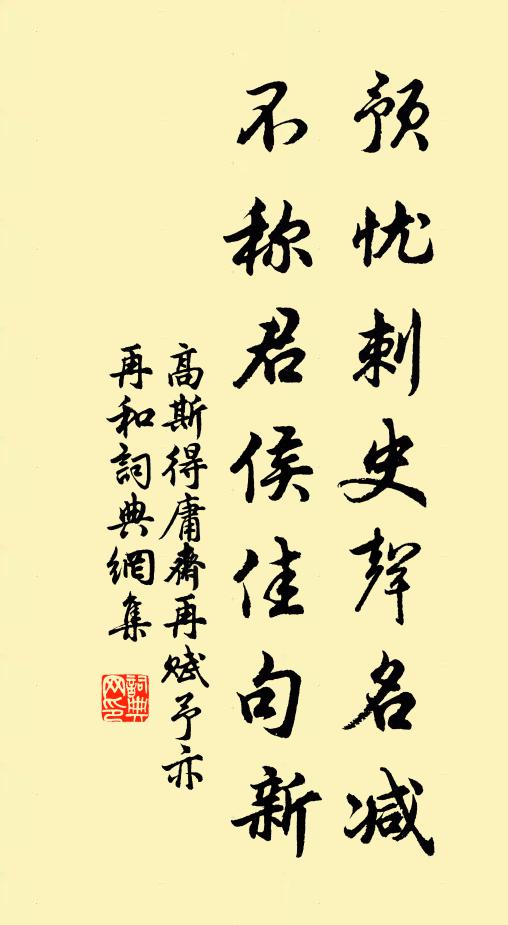 预忧刺史聲名减
不称君侯佳句新
高斯得庸齋再赋予亦
再和詞典網集
詞典网印